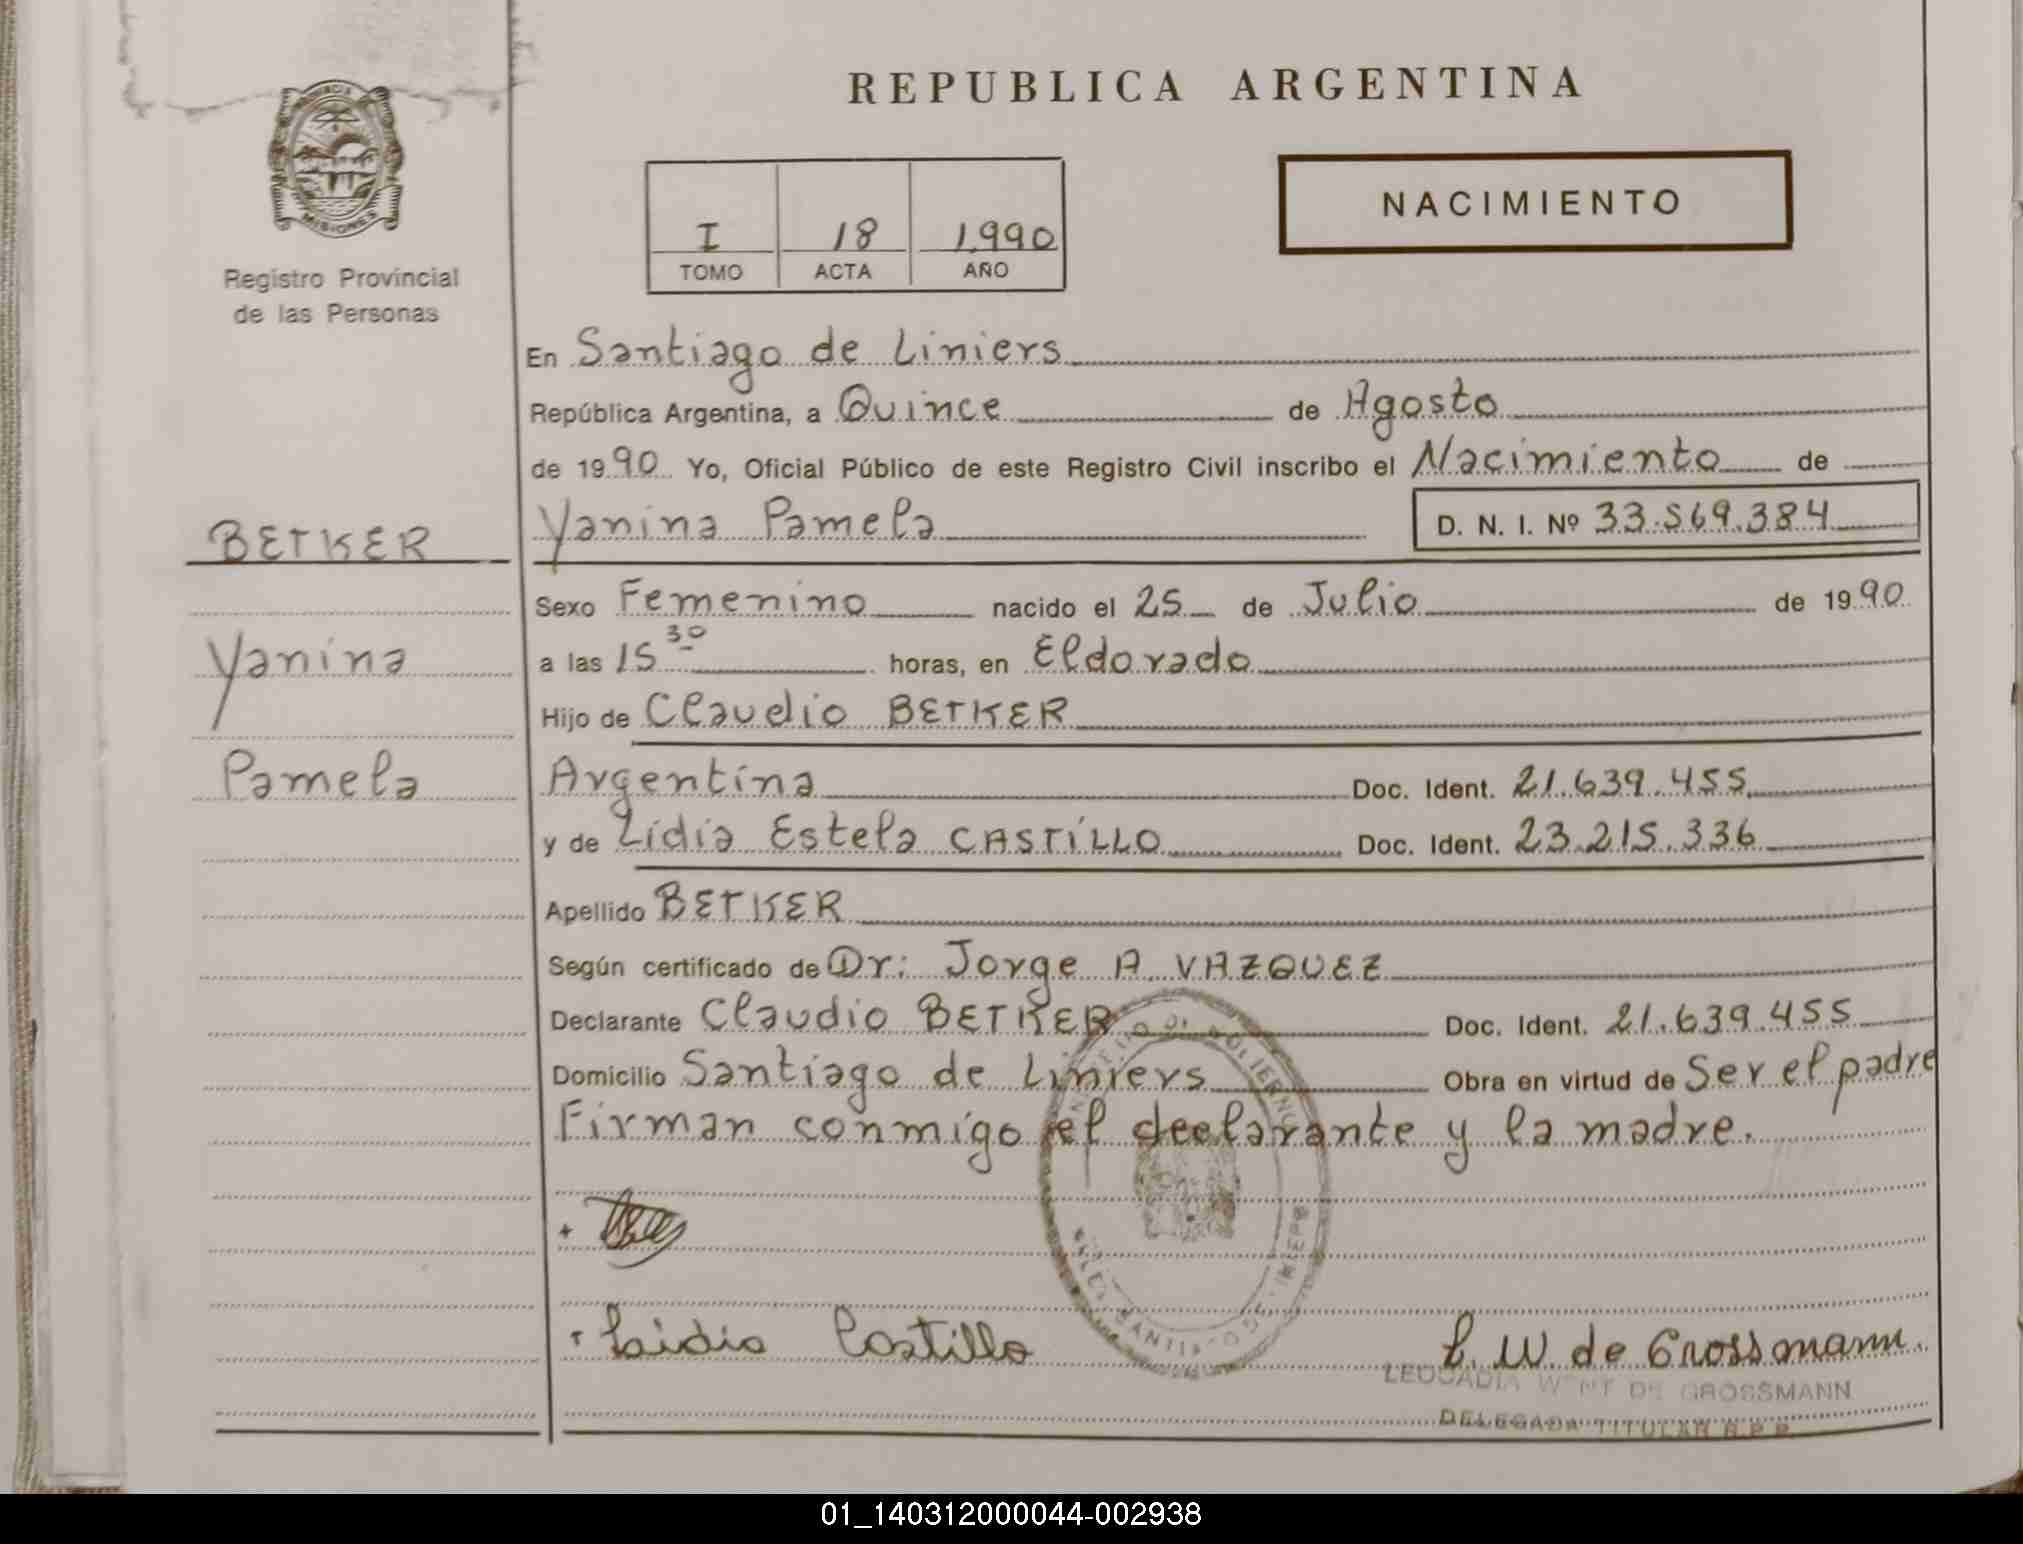 REPUBLICA ARGENTINA
MISIONES
Registro Provincial
de las Personas
I 18 1.990
TOMO ACTA AÑO
NACIMIENTO
En Santiago de Liniers
República Argentina, a Quince de Agosto
de 1990 Yo, Oficial Público de este Registro Civil inscribo el Nacimiento de
BETKER
Yanina Pamela D. N. I. Nº 33.569.384
Sexo Femenino nacido el 25 de Julio de 1990
Yanina
a las 15 30 horas, en Eldorado
Hijo de Claudio BETKER
Pamela
Argentina Doc. Ident. 21.639.455
y de Lidia Estela CASTÍLLO Doc. Ident. 23.215.336
Apellido BETKER
Según certificado de Dr: Jorge A VAZQUEZ
Declarante Claudio BETKER Doc. Ident. 21.639.455
Domicilio Santiago de Liniers Obra en virtud de Ser el padre
Firman conmigo el declarante y la madre.
Lidia Castillo
L. W. de Grossmann.
LEOCADIA DE GROSSMANN
DELEGADA TITULAR R.P.P.
01_140312000044-002938